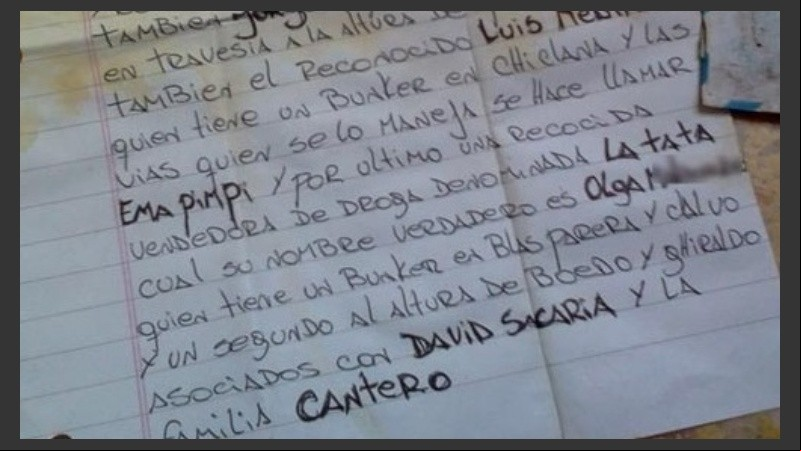 TAMBIEN
EN TRAVESIA A LA ALTURA DE
TAMBIEN EL RECONOCIDO LUIS
QUIEN TIENE UN BUNKER EN CHICLANA Y LAS
VIAS QUIEN SE LO MANEJA SE HACE LLAMAR
EMA PIMPI Y POR ULTIMO UNA RECOCIDA
VENDEDORA DE DROGA DENOMINADA LA TATA
CUAL SU NOMBRE VERDADERO ES OLGA
QUIEN TIENE UN BUNKER EN BLAS PARERA Y CALVO
Y UN SEGUNDO AL ALTURA DE BOEDO Y GHIRALDO
ASOCIADOS CON DAVID SACARIA Y LA
FAMILIA CANTERO